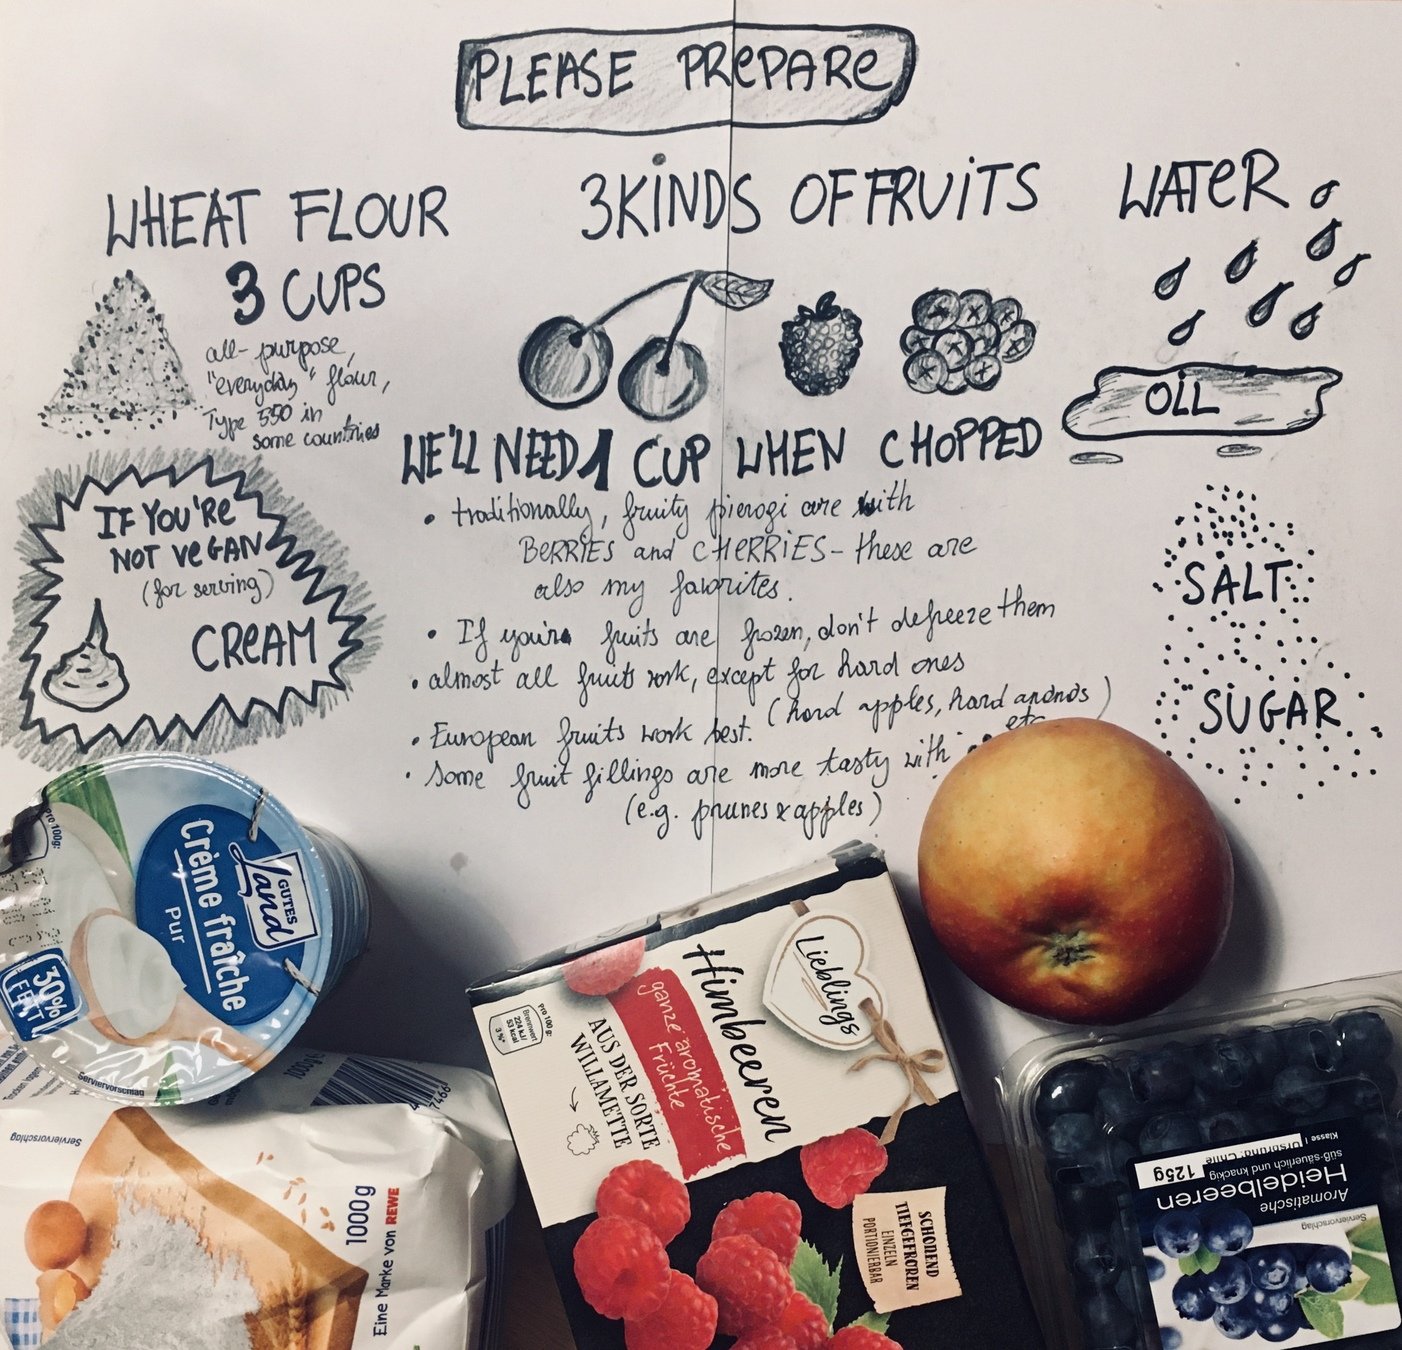 PLEASE PREPARE
WHEAT FLOUR
3 CUPS
all-purpose,
"everyday" flour,
Type 550 in
some countries
3 KINDS OF FRUITS
WE'LL NEED 1 CUP WHEN CHOPPED
• traditionally, fruity pierogi are with
BERRIES and CHERRIES - these are
also my favorites.
• If you're fruits are frozen, don't defreeze them
• almost all fruits work, except for hard ones
(hard apples, hard ananas)
etc
• European fruits work best.
• Some fruit fillings are more tasty with
(e.g. prunes & apples)
WATER
OIL
SALT
SUGAR
IF YOU'RE
NOT VEGAN
(for serving)
CREAM
GUTES
Land
Crème fraîche
Pur
30%
FETT
Pro 100g:
Serviervorschlag
Serviervorschlag
1000g
Eine Marke von REWE
Lieblings
Himbeeren
ganze aromatische
Früchte
AUS DER SORTE
WILLAMETTE
Pro 100 g:
Brennwert
224 kJ/
53 kcal
3 %*
SCHONEND
TIEFGEFROREN
EINZELN
PORTIONIERBAR
Serviervorschlag
Aromatische
Heidelbeeren
süß-säuerlich und knackig
125g
Klasse I Ursprung: Chile